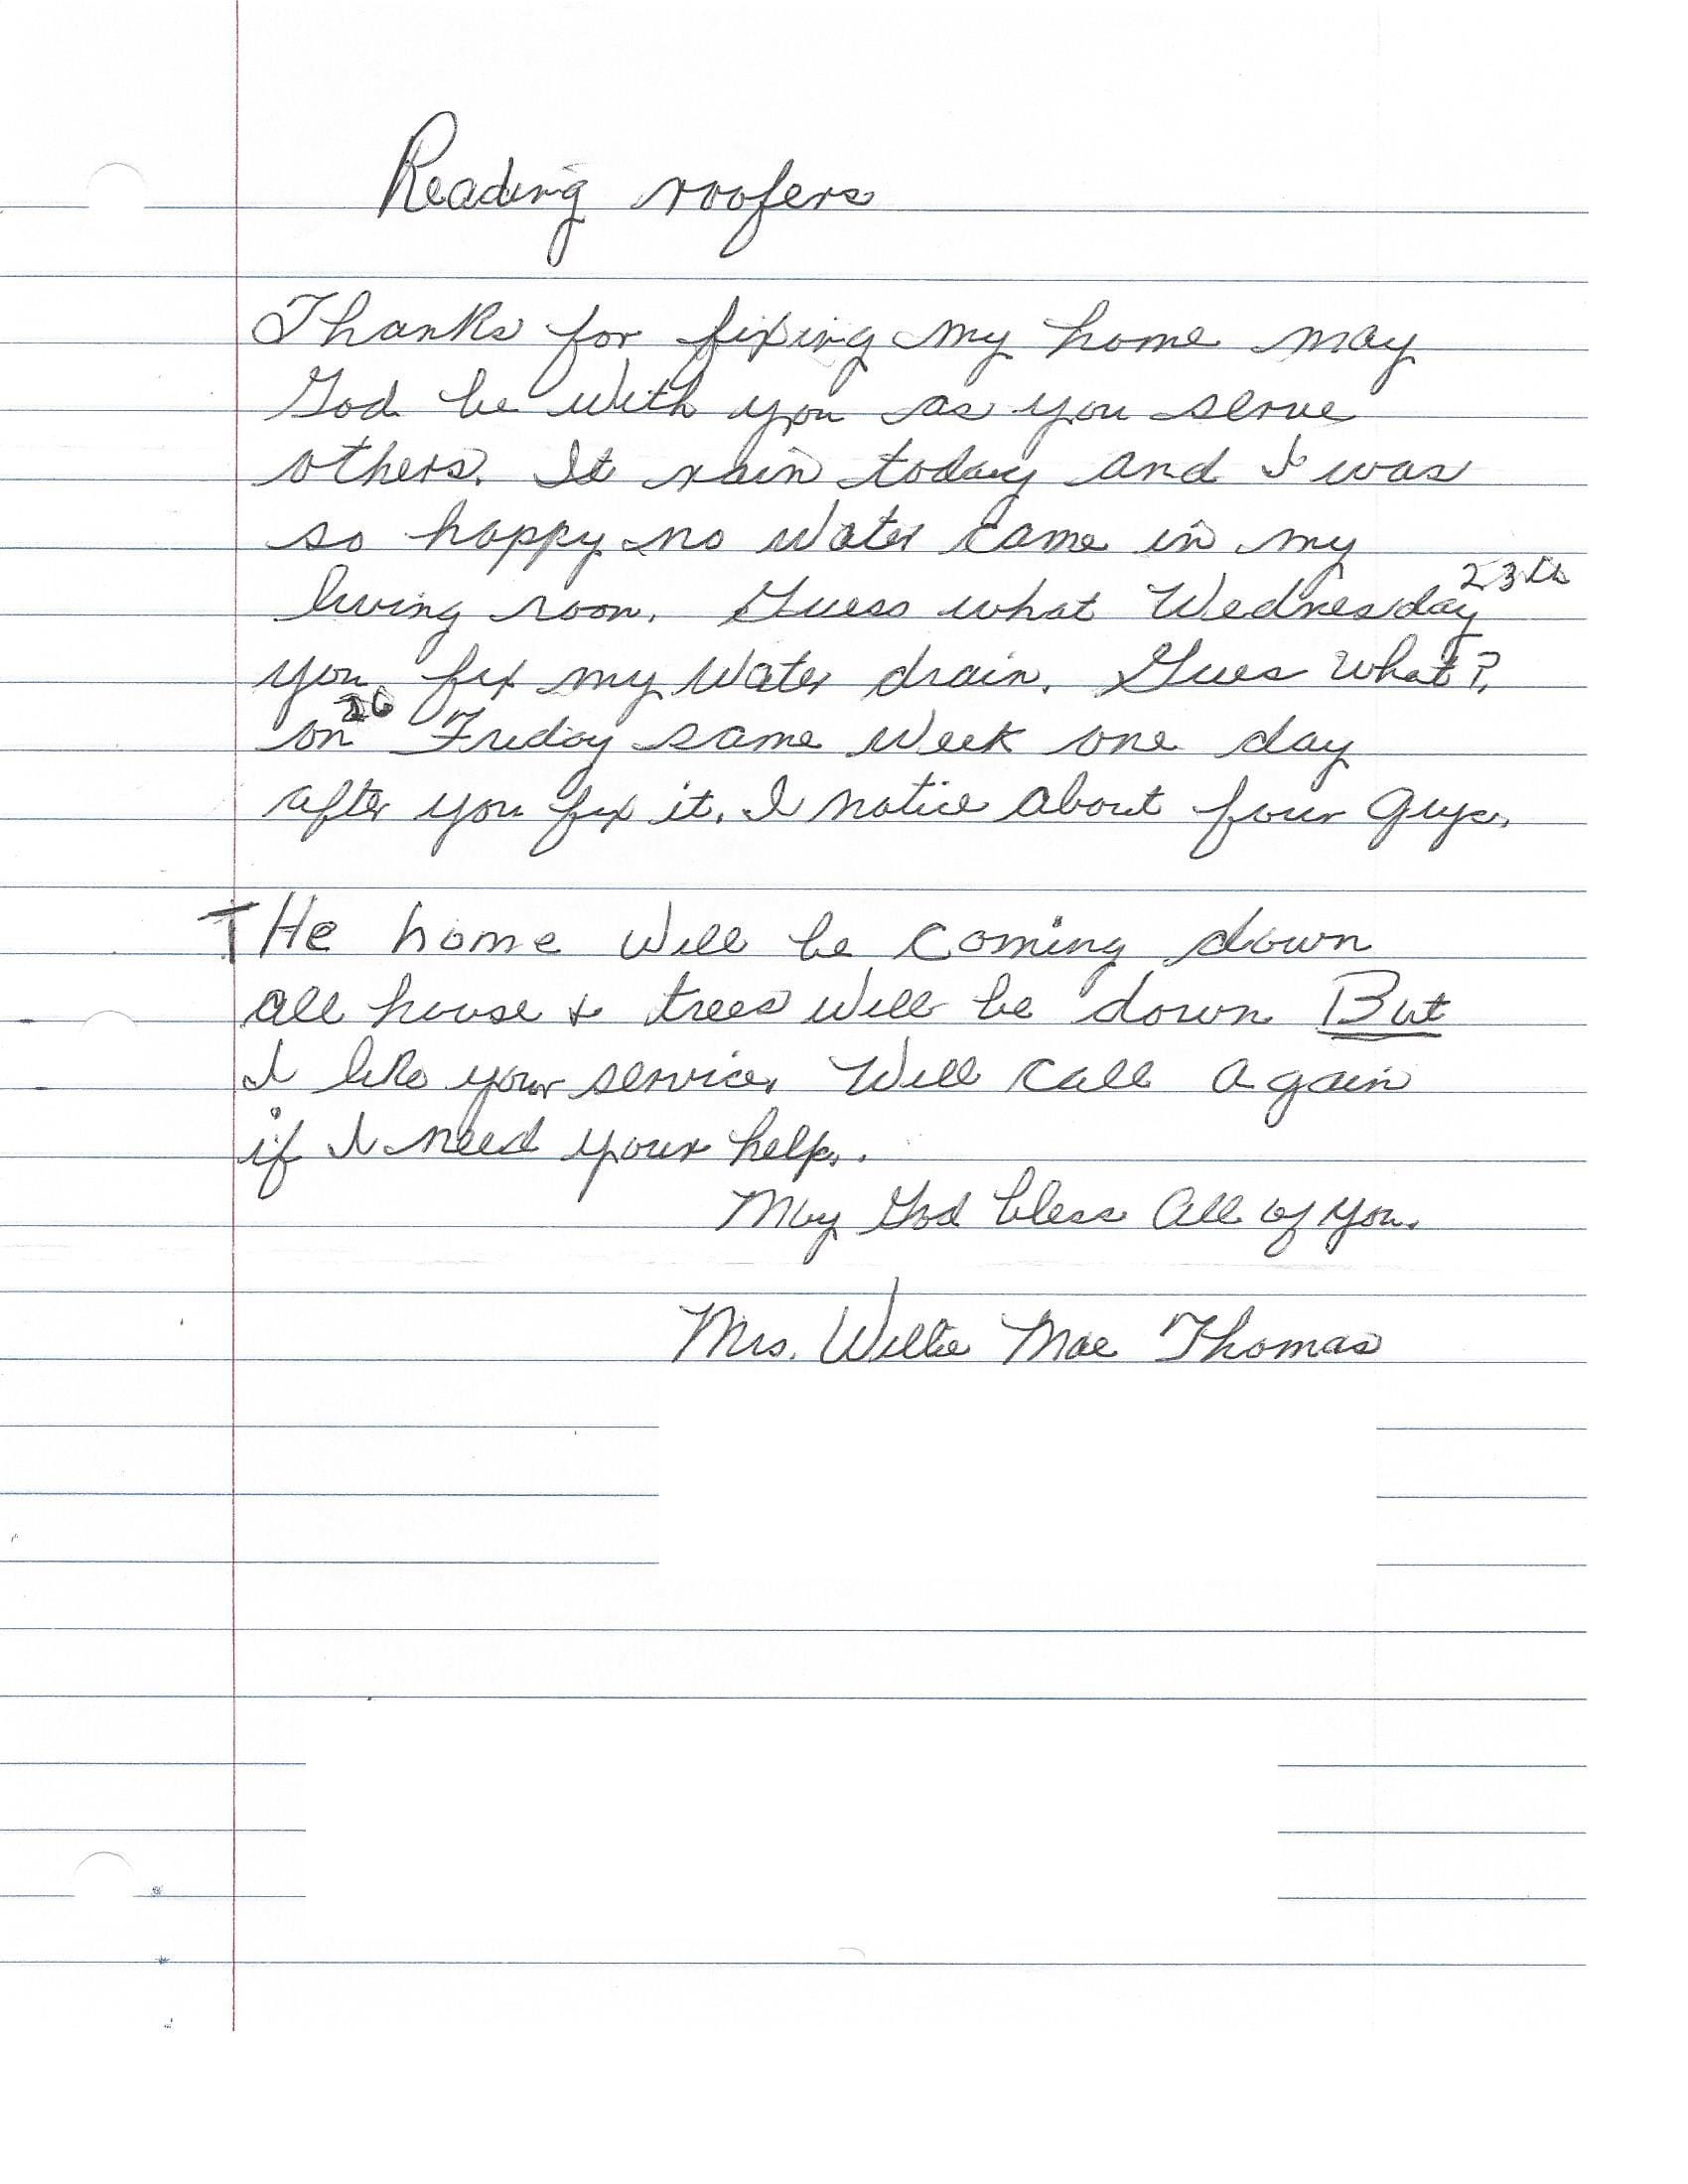 Reading roofers
Thanks for fixing my home may
God be with you as you serve
others. It rain today and I was
so happy no water came in my
living room. Guess what Wednesday 23th
you fix my water drain. Gues what?
on 26 Friday same week one day
after you fix it. I notice about four guys.
THe home will be coming down
all house & trees will be down But
I like your service. Will call again
if I need your help.
May God bless all of you.
Mrs. Willie Mae Thomas